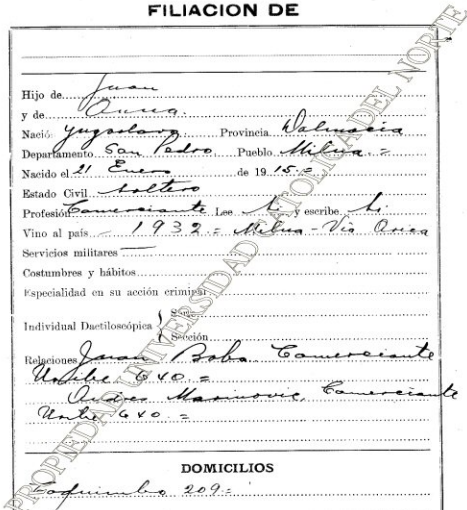 FILIACION DE
Hijo de Juan
y de Anna.
Nació Yugoslavo Provincia Dalmacia
Departamento San Pedro Pueblo Milna =
Nacido el 21 Enero de 1915.=
Estado Civil Soltero
Profesión Comerciante Lee Si y escribe Si
Vino al país 1932 = Milna - Vía Arica
Servicios militares
Costumbres y hábitos
Especialidad en su acción criminal
Individual Dactiloscópica { Serie
Sección
Relaciones Juan Babo Comerciante
Uribe 640 =
Andres Marinovic, Comerciante
Uribe 640 =
DOMICILIOS
Coquimbo 209.=
PROPIEDAD UNIVERSIDAD CATOLICA DEL NORTE